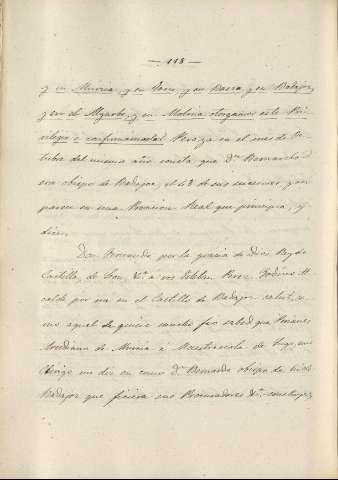 — 118 —
y en Murcia, y en Jaen, y en Baeza, y en Badajoz,
y en el Algarbe, y en Molina otorgamos este Pri-
vilegio è confirmamoslo. Pero ya en el mes de Oc-
tubre del mismo año consta que Dn. Bernardo
era obispo de Badajoz, el 12 de sus sucesores, y
parece en una Provision Real que principia, y
dice:
Don Fernando por la gracia de Dios Rey de
Castilla, de Leon, &a. à vos Esteban Perez Godino Al-
calde por mi en el Castillo de Badajoz salut, co-
mo aquel de quien mucho fio sabed que
Arcediano de Murcia è Maestrescola de Lugo, mio
Clerigo me dijo en como Dn. Bernardo obispo de
Badajoz que ficiera sus Procuradores &a.